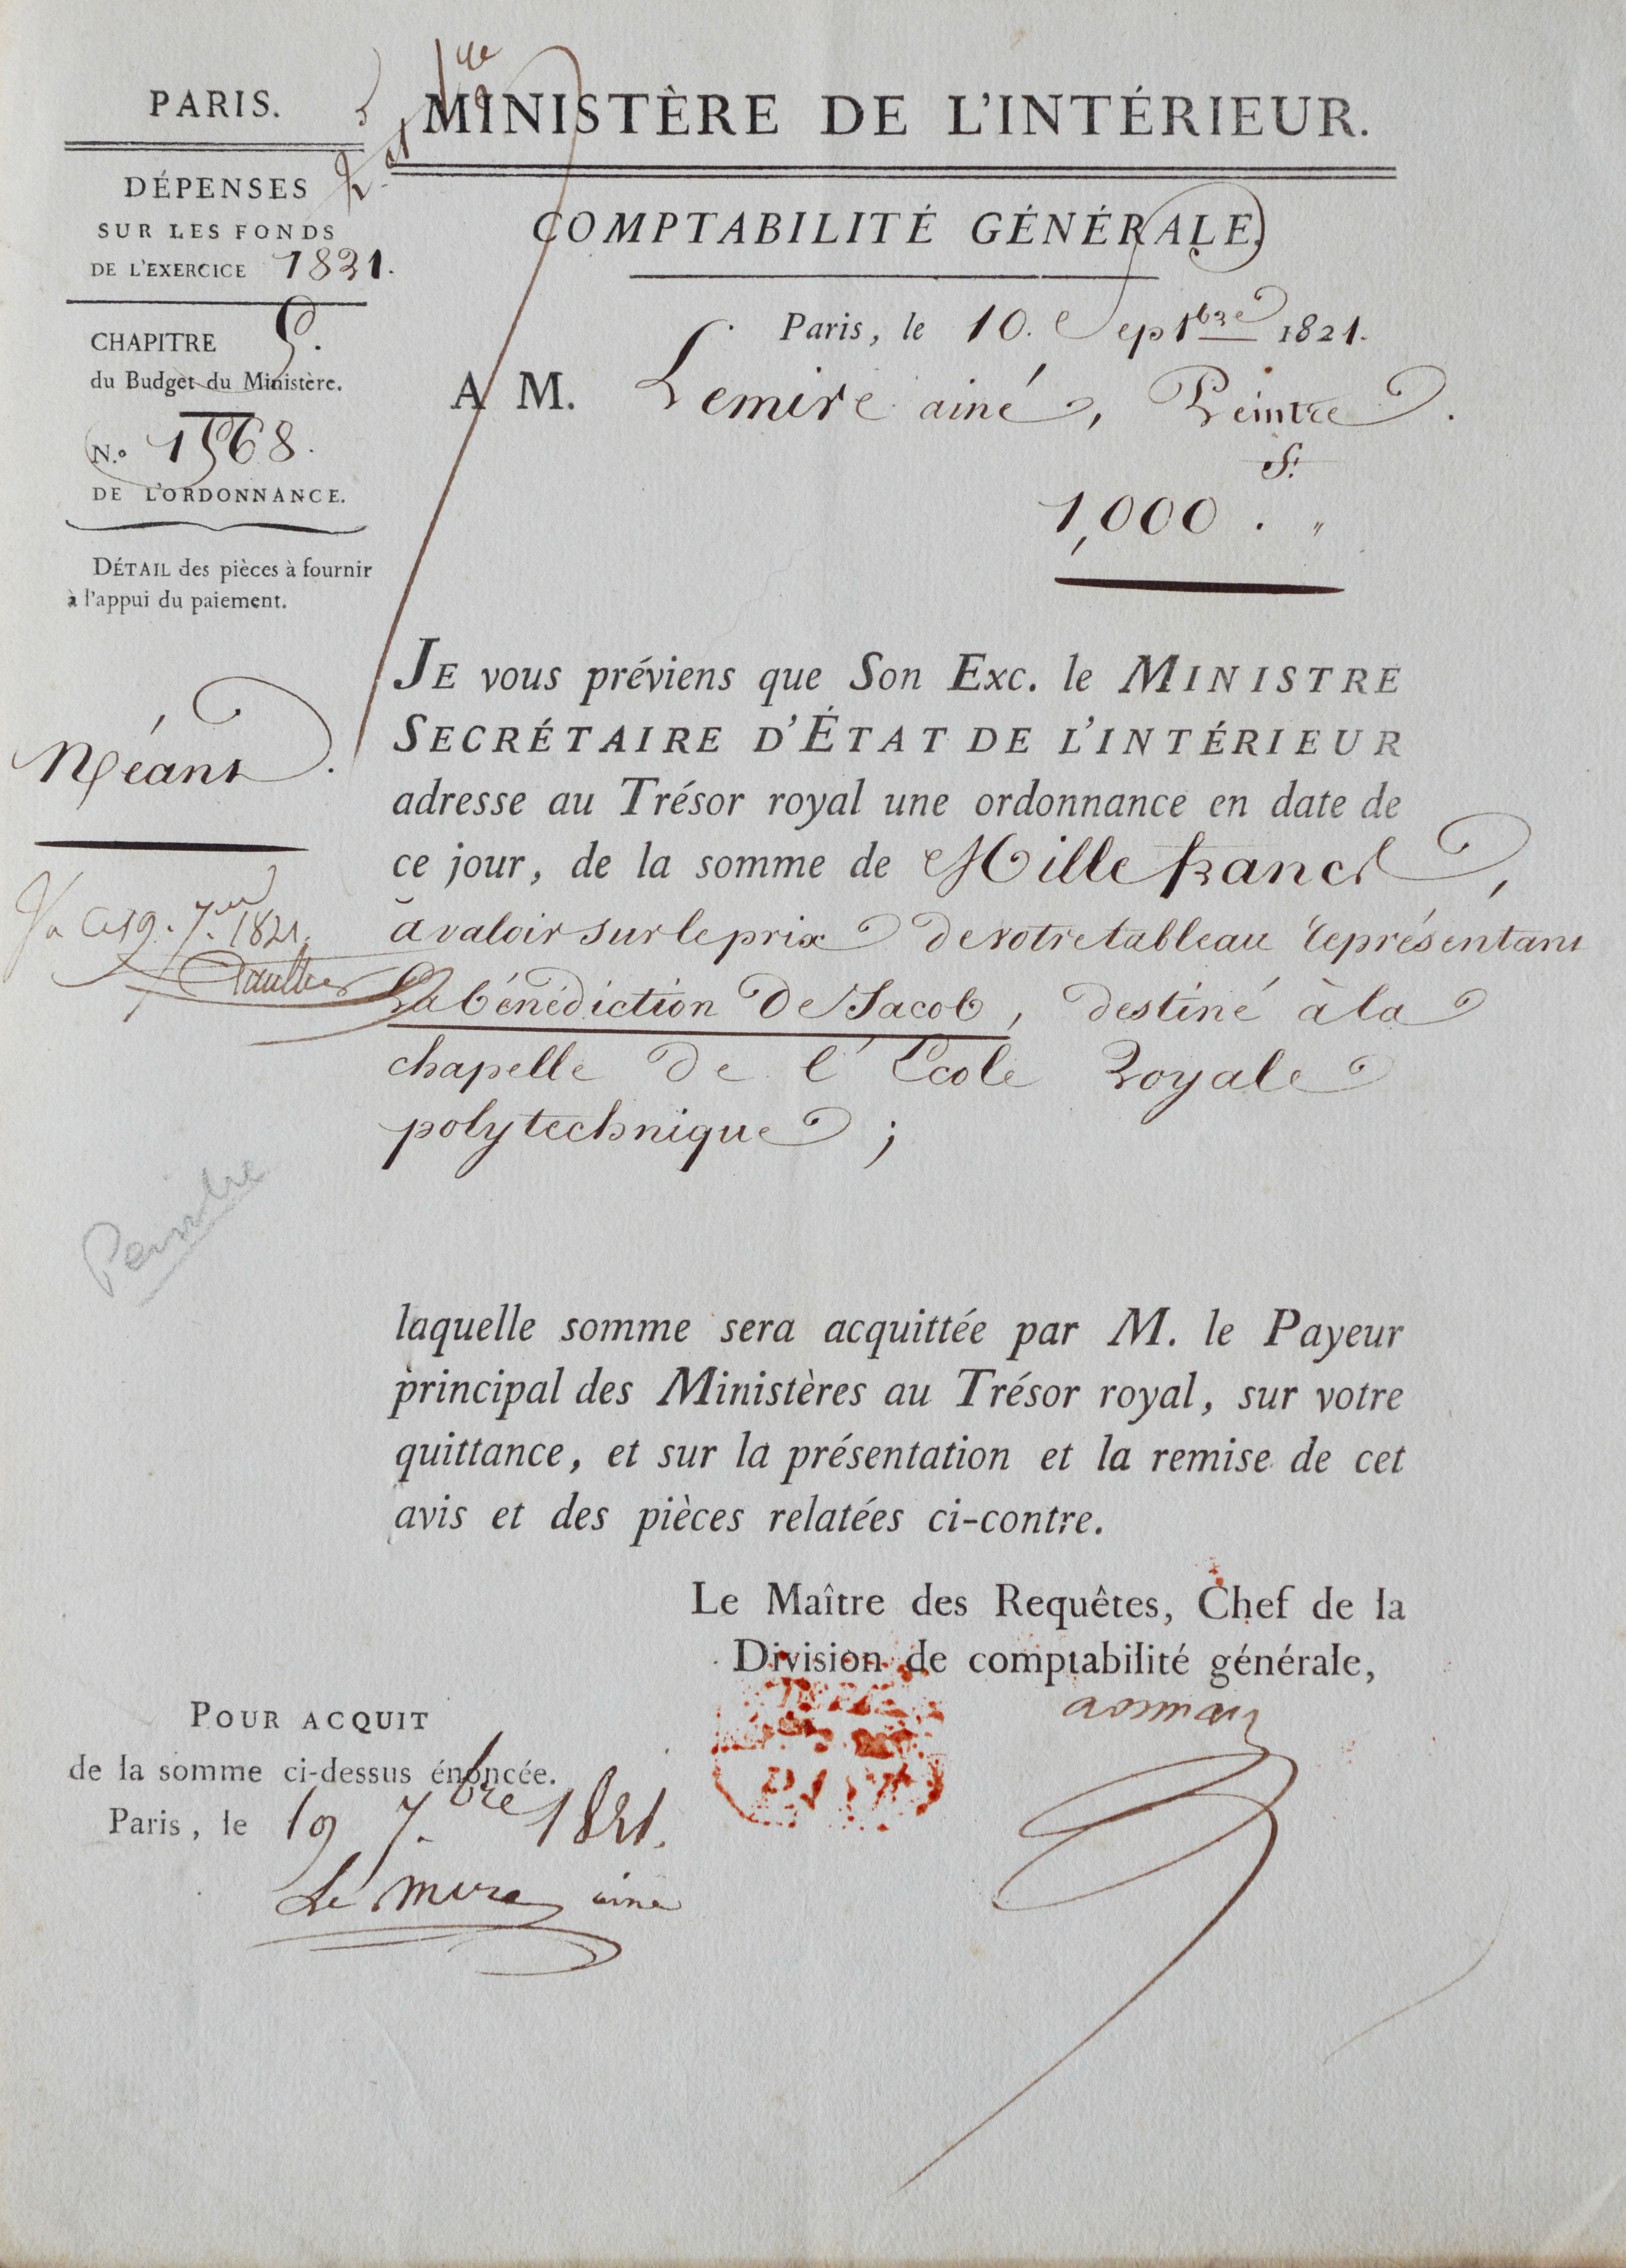 PARIS.
DÉPENSES
SUR LES FONDS
DE L'EXERCICE 1821.
CHAPITRE 5.
du Budget du Ministère.
N.° 1568.
DE L'ORDONNANCE.
DÉTAIL des pièces à fournir
à l'appui du paiement.
Néant.
Vu Ce 19. 7.bre 1821.
Peintre
MINISTÈRE DE L'INTÉRIEUR.
COMPTABILITÉ GÉNÉRALE.
Paris, le 10. Septbre 1821.
A M. Lemire ainé, Peintre.
f.
1,000 . "
JE vous préviens que Son Exc. le MINISTRE
SECRÉTAIRE D'ÉTAT DE L'INTÉRIEUR
adresse au Trésor royal une ordonnance en date de
ce jour, de la somme de Mille francs,
à valoir sur le prix de votre tableau représentant
La bénédiction de Jacob, destiné à la
chapelle de l'Ecole Royale
polytechnique ;
laquelle somme sera acquittée par M. le Payeur
principal des Ministères au Trésor royal, sur votre
quittance, et sur la présentation et la remise de cet
avis et des pièces relatées ci-contre.
Le Maître des Requêtes, Chef de la
Division de comptabilité générale,
POUR ACQUIT
de la somme ci-dessus énoncée.
Paris, le 19 7.bre 1821.
Le mire ainé